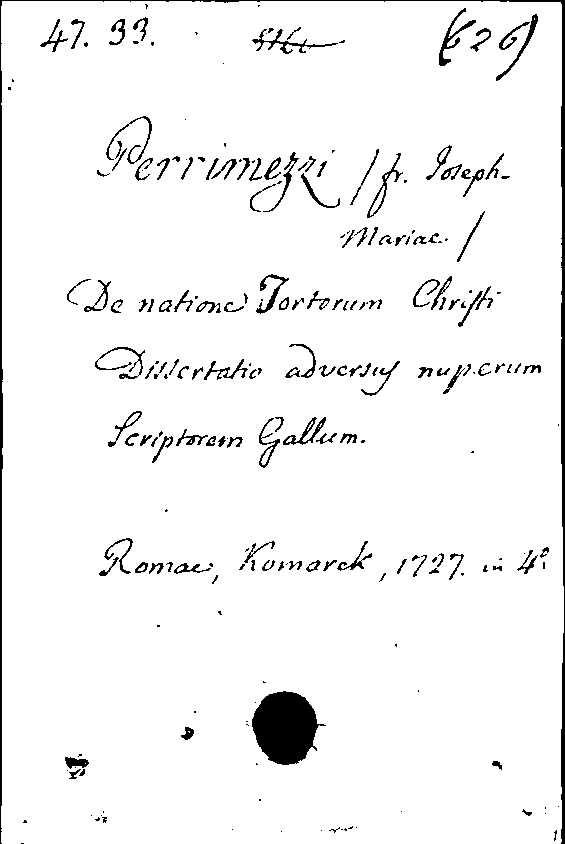 47. 33. (626)
Perrimezzi / fr. Joseph-
Mariae. /
De natione Tortorum Christi
Dissertatio adversus nuperum
Scriptorem Gallum.
Romae, Komarek, 1727. in 4º.